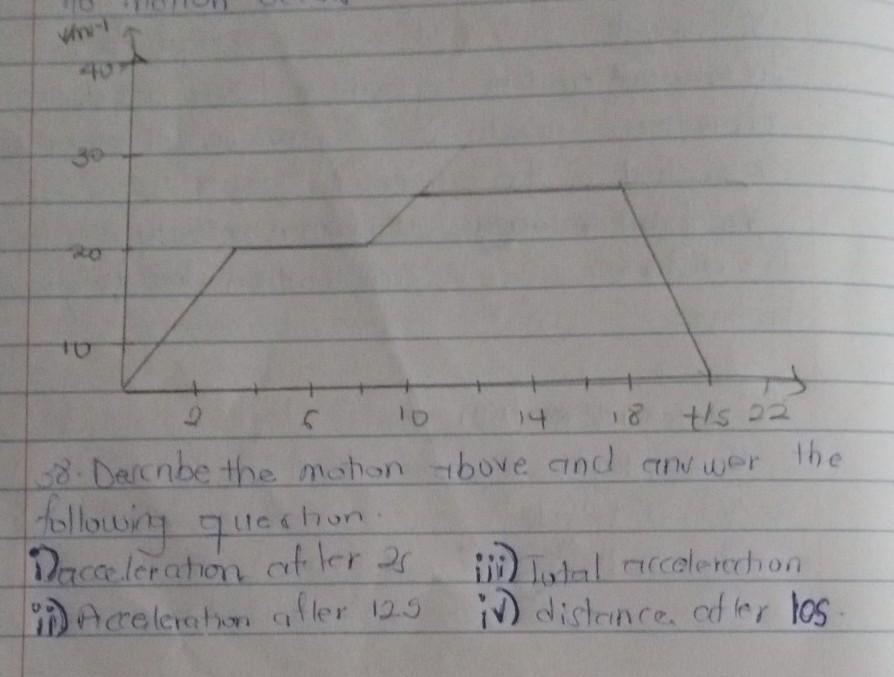 40
30
20
10
2 6 10 14 18 t/s 22
38. Describe the motion above and answer the
following question.
i) acceleration after 2s iii) Total acceleration
ii) Acceleration after 12s iv) distance after 10s.